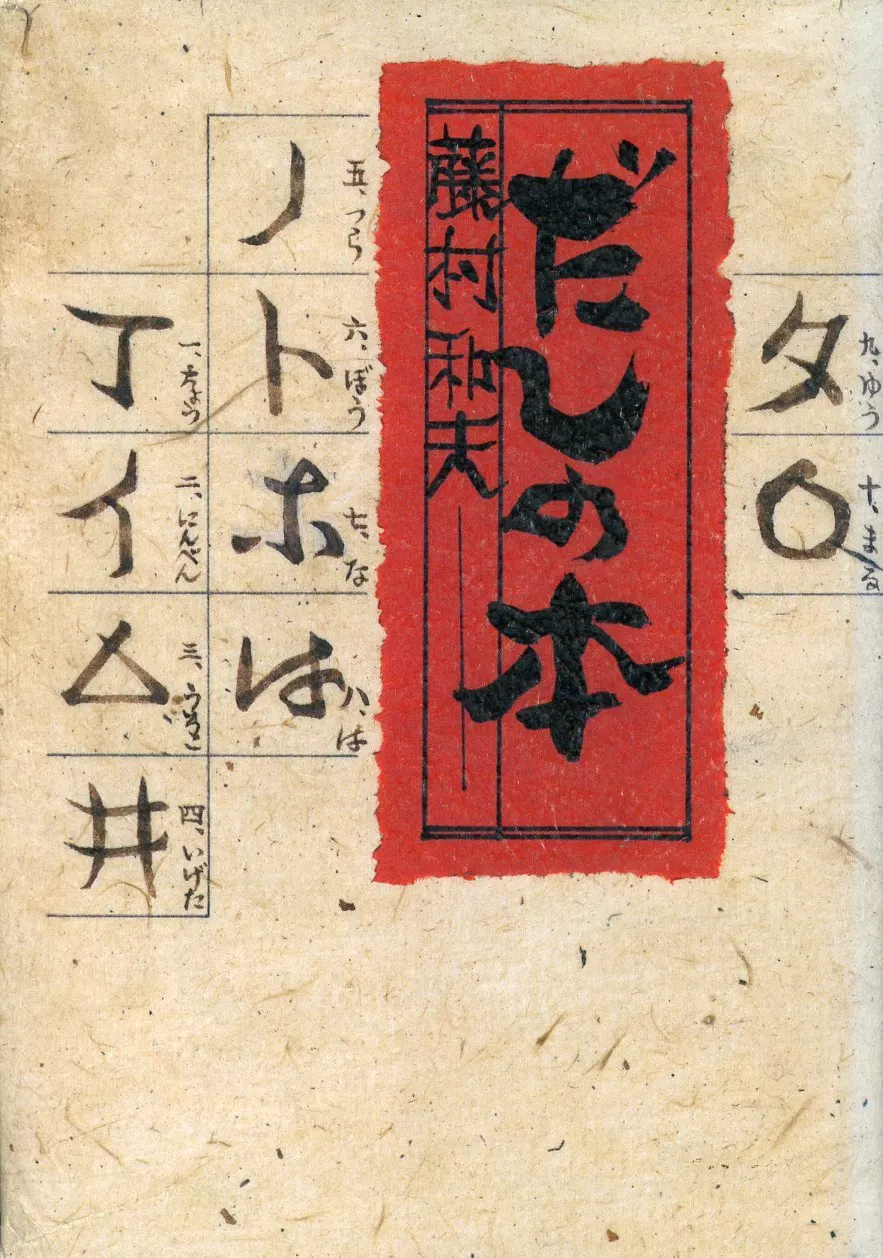 だしの本
藤村和夫
丁
一、ちょう
イ
二、にんべん
△
三、うろこ
井
四、いげた
ノ
五、つら
ト
六、ぼう
ホ
七、な
は
八、は
タ
九、ゆう
〇
十、まる